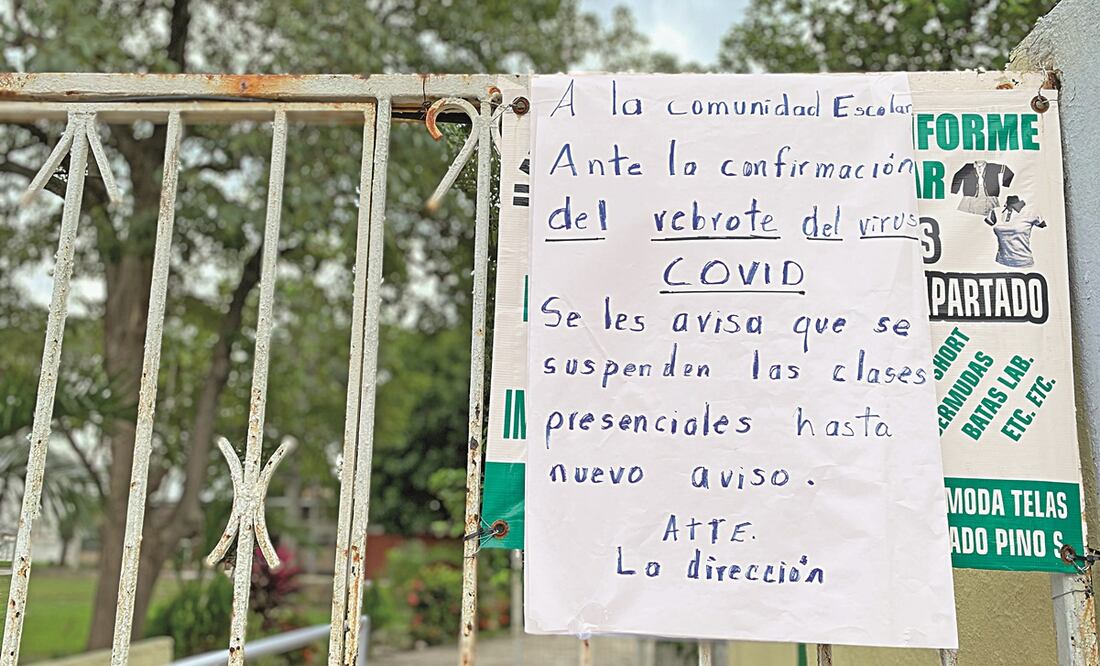 A la comunidad Escolar
Ante la confirmación
del rebrote del virus
COVID
Se les avisa que se
suspenden las clases
presenciales hasta
nuevo aviso.
ATTE.
La dirección
FORME
AR
S
PARTADO
SHORT
BERMUDAS
BATAS LAB.
ETC. ETC.
MODA TELAS
ADO PINO S